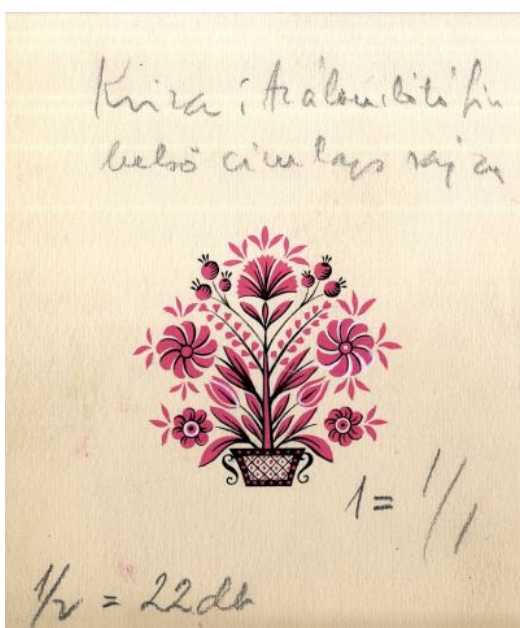 Kriza: Az álomlátó fiú
belső címlap rajza
1 = 1/1
1/2 = 22 db